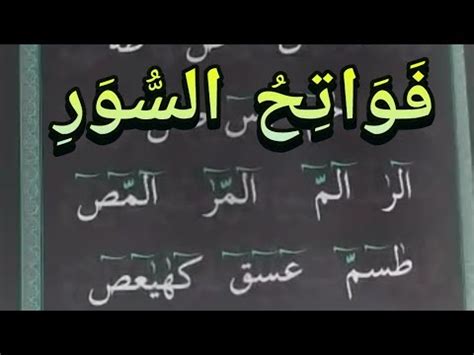 فَوَاتِحُ السُّوَرِ
الٓرٰ الٓمّٓ الٓمّٓرٰ الٓمّٓصٓ
طٰسٓمّٓ عٓسٓقٓ كٓهٰيٰعٓصٓ